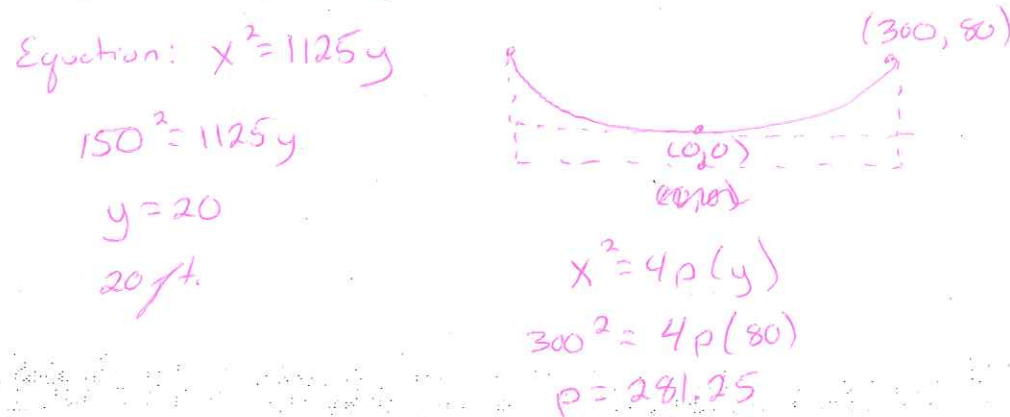 Equation: x² = 1125y
150² = 1125y
y = 20
20 ft.
(300, 80)
(0,0)
x² = 4p(y)
300² = 4p(80)
p = 281.25